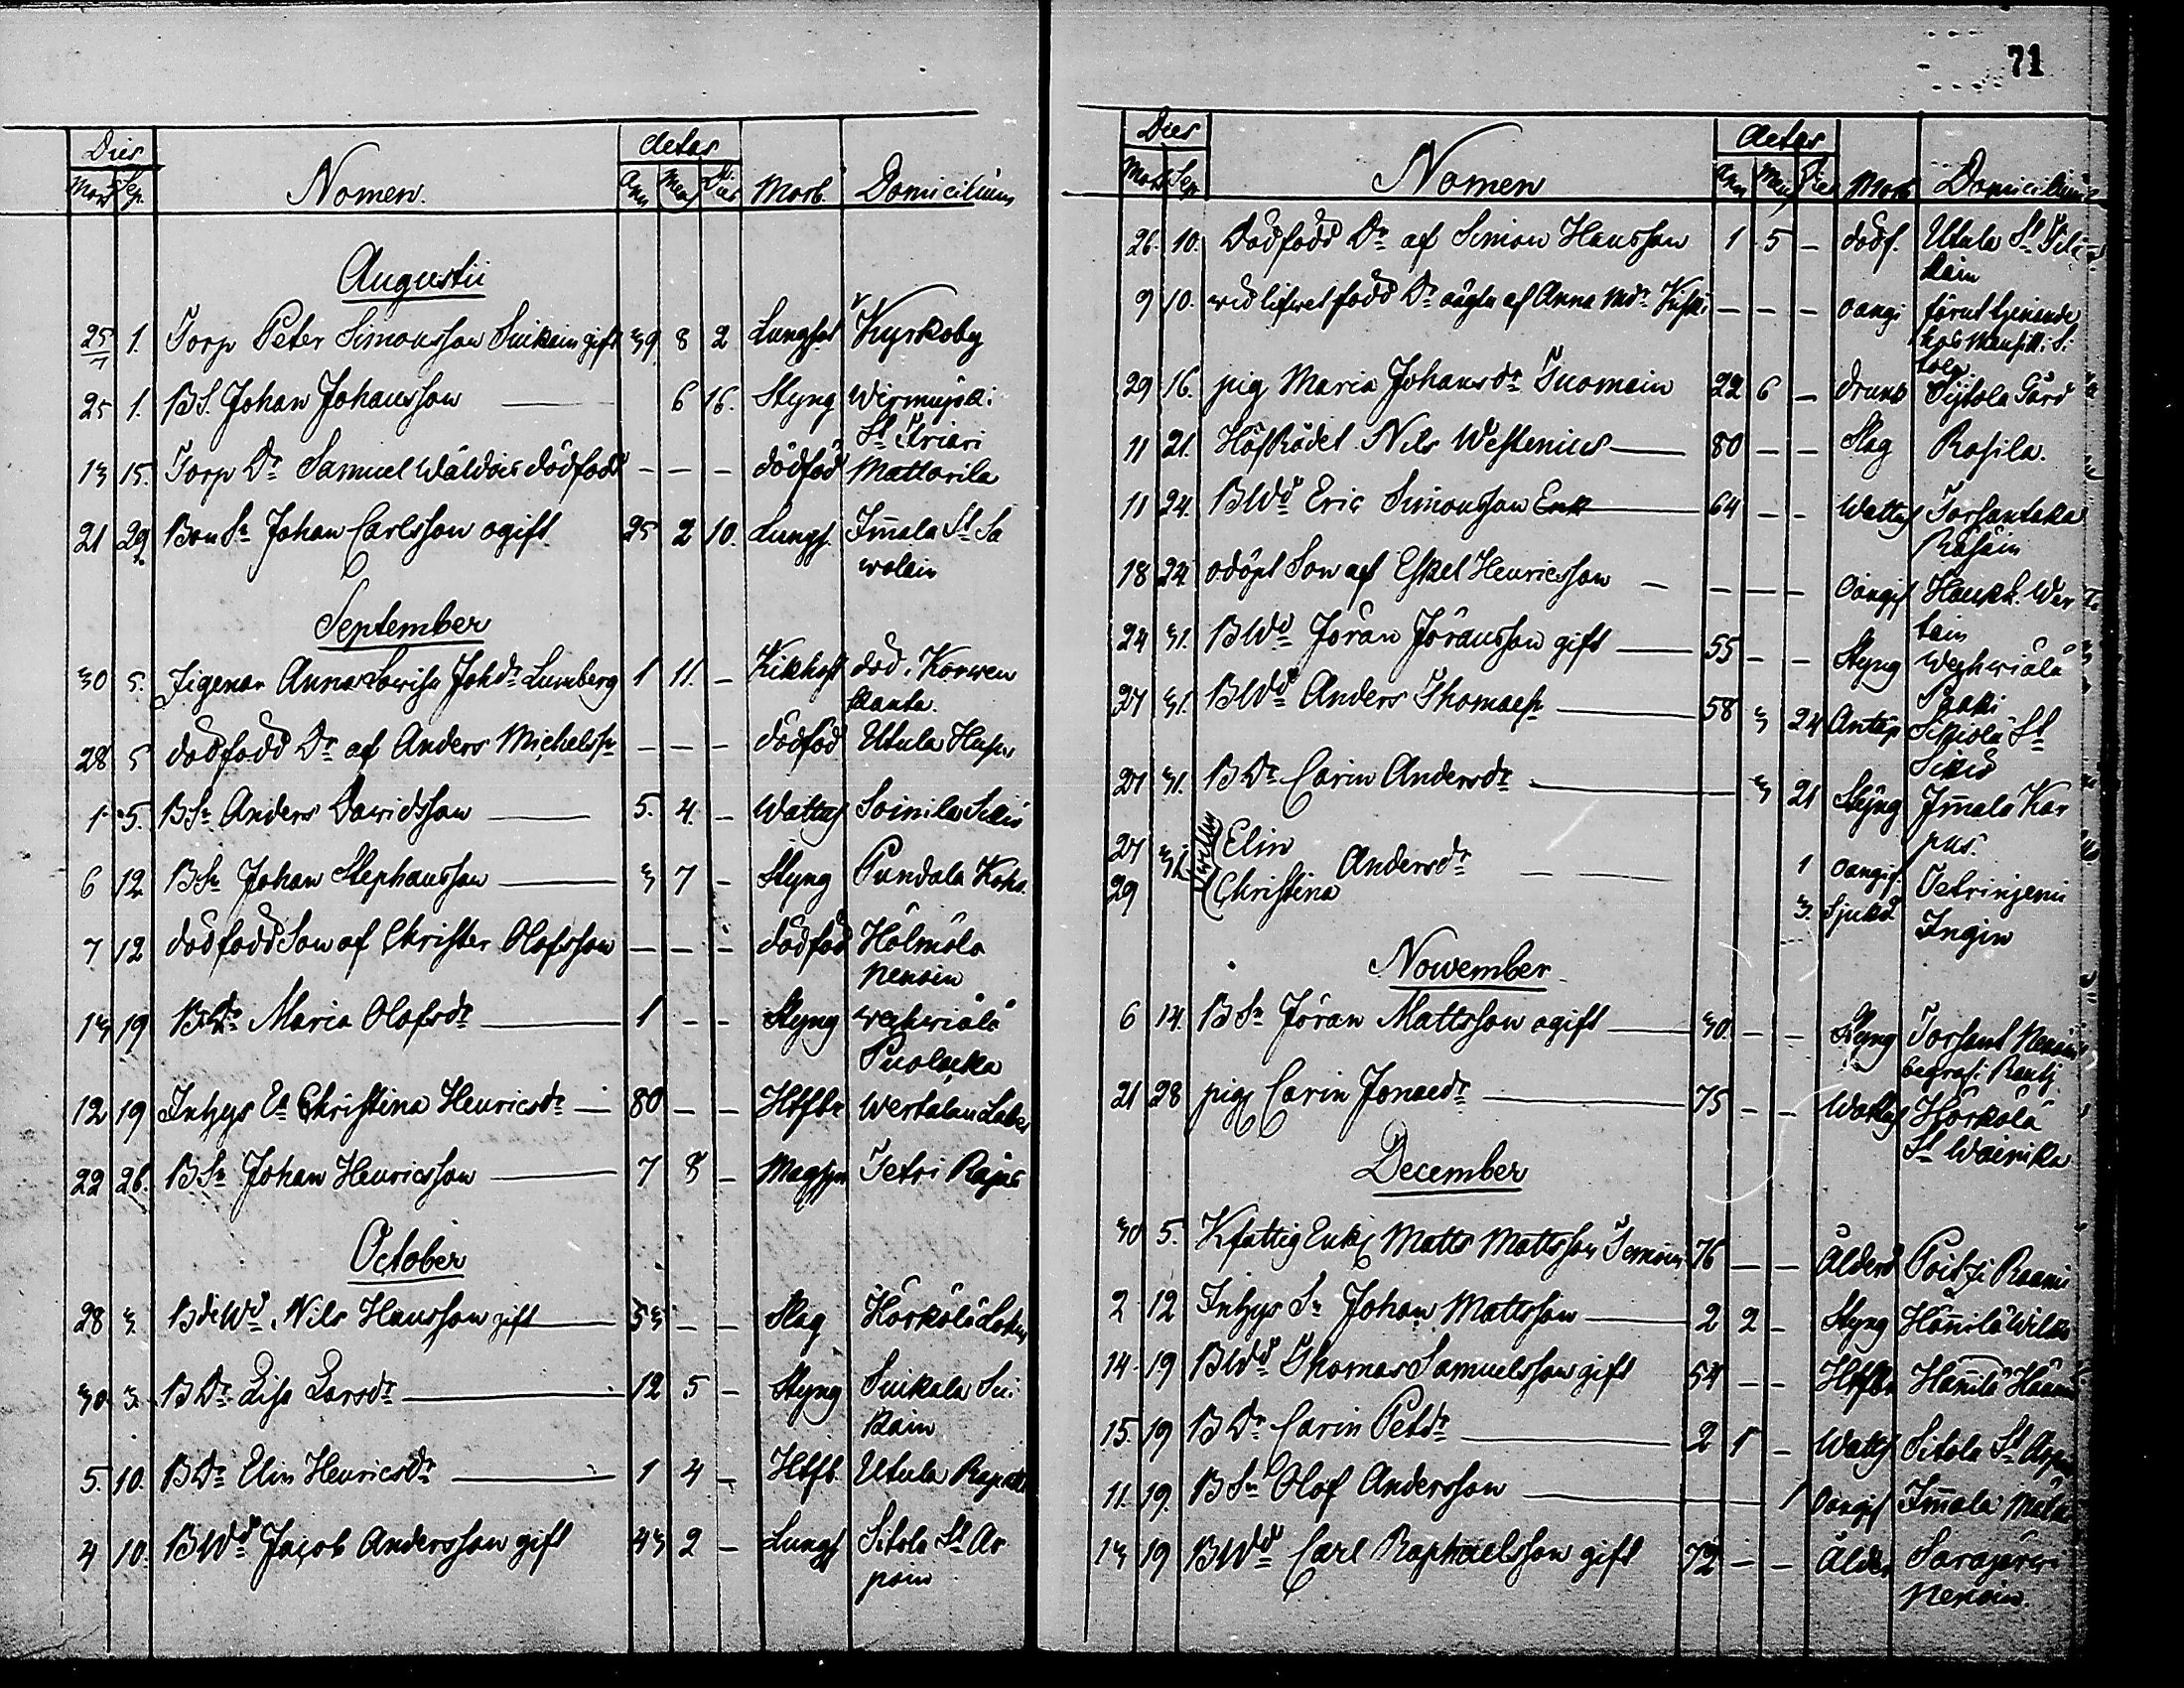 Dies Aetas
Mort Sep. Nomen. Ann Mens Dies Morb. Domicilium
Augustii
25/7 1. Torp Peter Simonsson Suikain gift 39 8 2 Lungsot Kyrkoby
25 1. BS. Johan Johansson — 6 16. Styng Wirmujoki
St Triari
13 15. Torp Dr Samuel Wäldois dödfödd — — — dödföd Mattorila
21 29 Bon Sn Johan Carlsson ogift 25 2 10. Lungs. Im̄ala St Sa
wolain
September
30 5. Zigenar Anna Lowisa Johdr Lumberg 1 11. — Kikhost död i Korwen
kanta.
28 5 dödfödd Dr af Anders Michelssn — — — dödföd Utula
1. 5. BSn Anders Davidsson — 5. 4. — Wattus Soinila Sikiö
6 12 BSn Johan Stephansson — 3 7 — Styng Pundala
7 12 dödfödd Son af Christer Olofsson — — — dödföd Hölmölä
Nenoin
13 19 BDr Maria Olofsdr — 1 — — Styng wehwiälä
Puolacka
12 19 Inhys Ea Christina Henricsdr — 80 — — Htfbr Wertalan
22 26. BSn Johan Henricsson — 7 8 — Magsyn Tetri Rajas
October
28 3. BdeWd Nils Hansson gift 53 — — Slag Hörkölä
30 3. BDr Lisa Larsdr — 12 5 — Styng Suikala Sui
kain
5. 10. BDr Elin Henricsdr — 1 4 — Htfb. Utula
4 10. BWd Jacob Andersson gift 43 2 — Lungs Sitola St Ar
poin
71
Dies Aetas
Mort Sep Nomen Ann Mens Dies Morb Domicilium
26. 10. Dödfödd Dr af Simon Hansson 1 5 — dödf. Utula St
kain
9 10. wid lifwet född Dr oägta af Anna Mdr — — — oangi förut tjenande
hos
tola.
29 16. pig Maria Johansdr Tuomain 22 6 — Sijtola Gård
11 21. HofRådet Nils Westenius — 80 — — Slag Rasila.
11 24. BWd Eric Simonsson Enk — 64 — — Wattus Torsantaka
Räsäin
18 24 odöpt Son af Eskel Henricsson — — — — Oangif Haukk. Wer
tain
24 31. BWd Jöran Jöransson gift — 55 — — Styng Wehwiälä
Paaki
27 31. BWd Anders Thomaesn — 58 3 24 Sikiölä St
Sikiö
27 31. BDr Carin Andersdr — 3 21 Styng Im̄ala Kar
pus.
27 31. Twilling Elin Andersdr — — 1 oangif. Tetrinjemi
29 Christina 3. Sjukd Ingin
Nowember
6 14. BSn Jöran Mattsson ogift — 30. — — Styng Torsant Nenoin
begraf i
21 28 pig Carin Jonaedr — 75 — — Wattus Hörkölä
St Wainika
December
30 5. Kfattig Enkl Matts Mattsson 76 — — Ålderd
2 12 Inhys Sn Johan Mattsson — 2 2 — Styng Hän̄ilä
14. 19 BWd Thomas Samuelsson gift 54 — — Htfbr Hän̄ilä
15. 19 BDr Carin Petdr — 2 1 — Watts Sitola St
11. 19. BSn Olof Andersson — 1 Oangif Im̄ala
13 19 BWd Carl Raphaelsson gift 72 — — Ålder Sarajärwi
Nenoin.